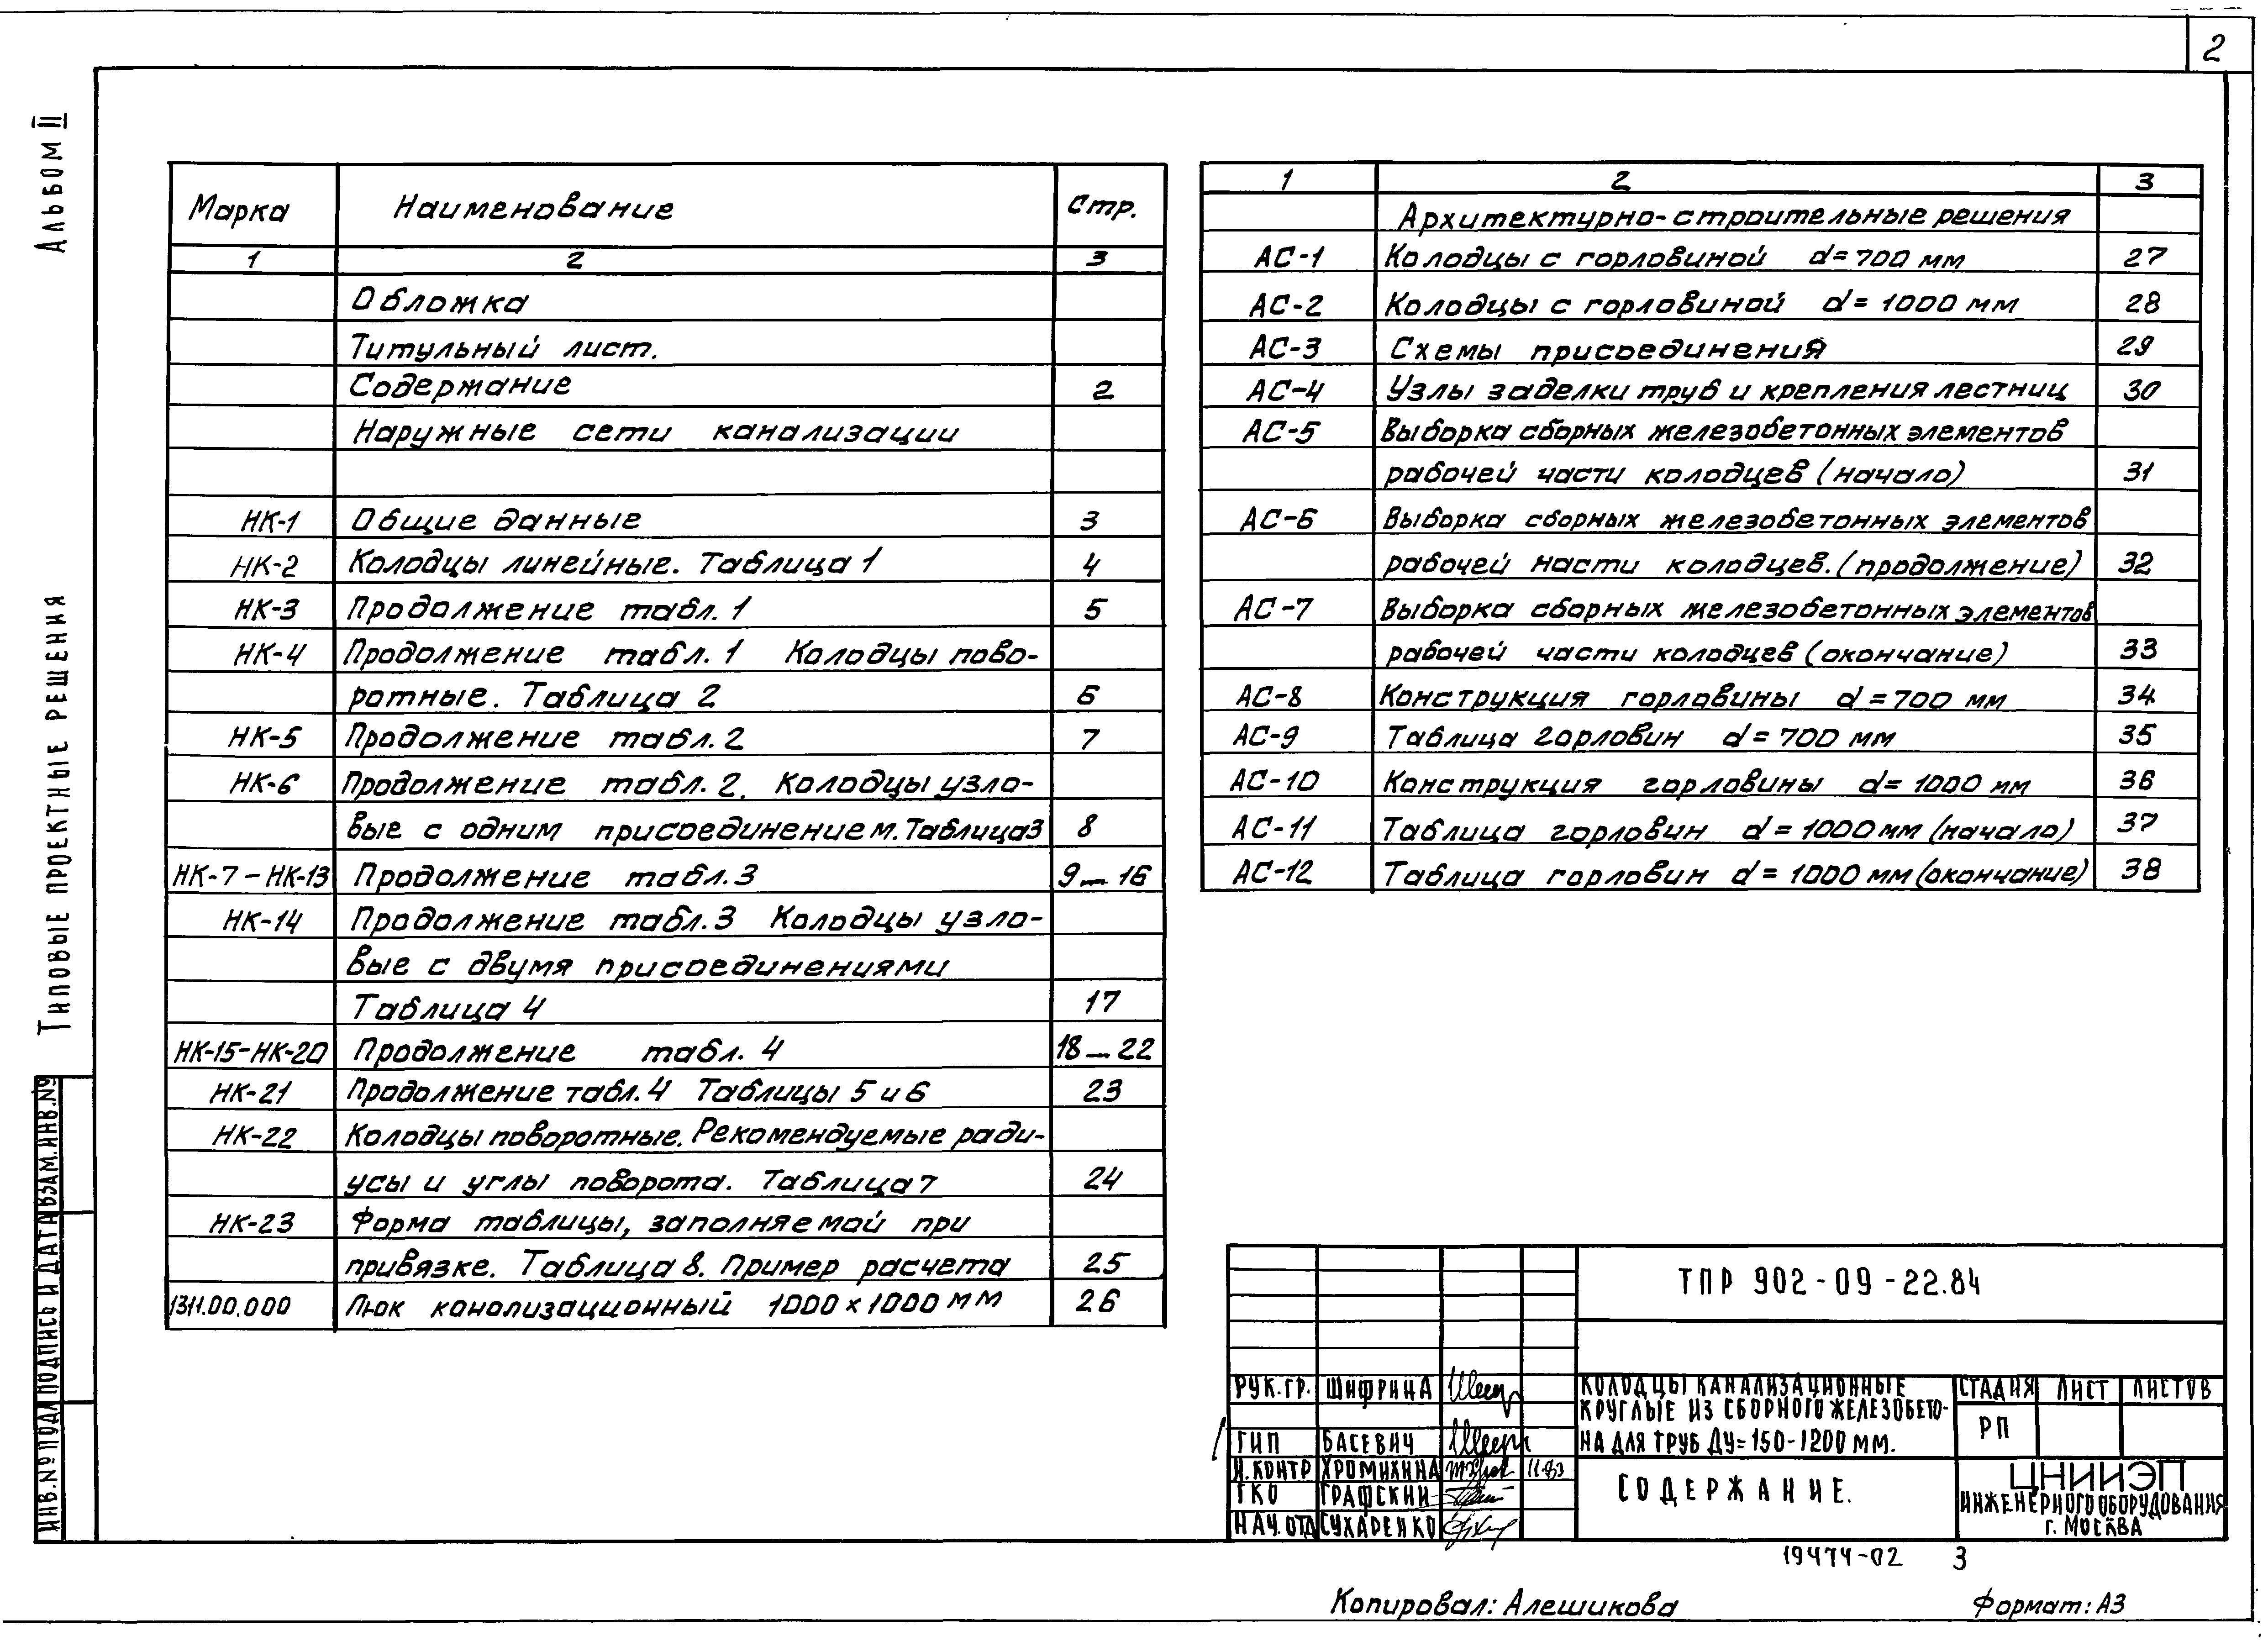 2
Альбом II
Типовые проектные решения
Марка Наименование Стр.
1 2 3
Обложка
Титульный лист.
Содержание 2
Наружные сети канализации
НК-1 Общие данные 3
НК-2 Колодцы линейные. Таблица 1 4
НК-3 Продолжение табл. 1 5
НК-4 Продолжение табл. 1 Колодцы пово-
ротные. Таблица 2 6
НК-5 Продолжение табл. 2 7
НК-6 Продолжение табл. 2. Колодцы узло-
вые с одним присоединением. Таблица 3 8
НК-7-НК-13 Продолжение табл. 3 9-16
НК-14 Продолжение табл. 3 Колодцы узло-
вые с двумя присоединениями
Таблица 4 17
НК-15-НК-20 Продолжение табл. 4 18-22
НК-21 Продолжение табл. 4 Таблицы 5 и 6 23
НК-22 Колодцы поворотные. Рекомендуемые ради-
усы и углы поворота. Таблица 7 24
НК-23 Форма таблицы, заполняемой при
привязке. Таблица 8. Пример расчета 25
1311.00.000 Люк канализационный 1000×1000 мм 26
1 2 3
Архитектурно-строительные решения
АС-1 Колодцы с горловиной d=700 мм 27
АС-2 Колодцы с горловиной d=1000 мм 28
АС-3 Схемы присоединения 29
АС-4 Узлы заделки труб и крепления лестниц 30
АС-5 Выборка сборных железобетонных элементов
рабочей части колодцев (начало) 31
АС-6 Выборка сборных железобетонных элементов
рабочей насти колодцев. (продолжение) 32
АС-7 Выборка сборных железобетонных элементов
рабочей части колодцев (окончание) 33
АС-8 Конструкция горловины d=700 мм 34
АС-9 Таблица горловин d=700 мм 35
АС-10 Конструкция горловины d=1000 мм 36
АС-11 Таблица горловин d=1000 мм (начало) 37
АС-12 Таблица горловин d=1000 мм (окончание) 38
ИНВ.№ ПОДЛ ПОДПИСЬ И ДАТА ВЗАМ.ИНВ.№
ТПР 902-09-22.84
РУК.ГР. ШИФРИНА
ГИП БАСЕВИЧ
Н.КОНТР ХРОМИХИНА 11.83
ГКО ГРАФСКИЙ
НАЧ.ОТД СУХАРЕНКО
КОЛОДЦЫ КАНАЛИЗАЦИОННЫЕ
КРУГЛЫЕ ИЗ СБОРНОГО ЖЕЛЕЗОБЕТО-
НА ДЛЯ ТРУБ ДУ=150-1200 ММ.
СТАДИЯ ЛИСТ ЛИСТОВ
РП
СОДЕРЖАНИЕ.
ЦНИИЭП
ИНЖЕНЕРНОГО ОБОРУДОВАНИЯ
Г. МОСКВА
19474-02 3
Копировал: Алешикова Формат: А3